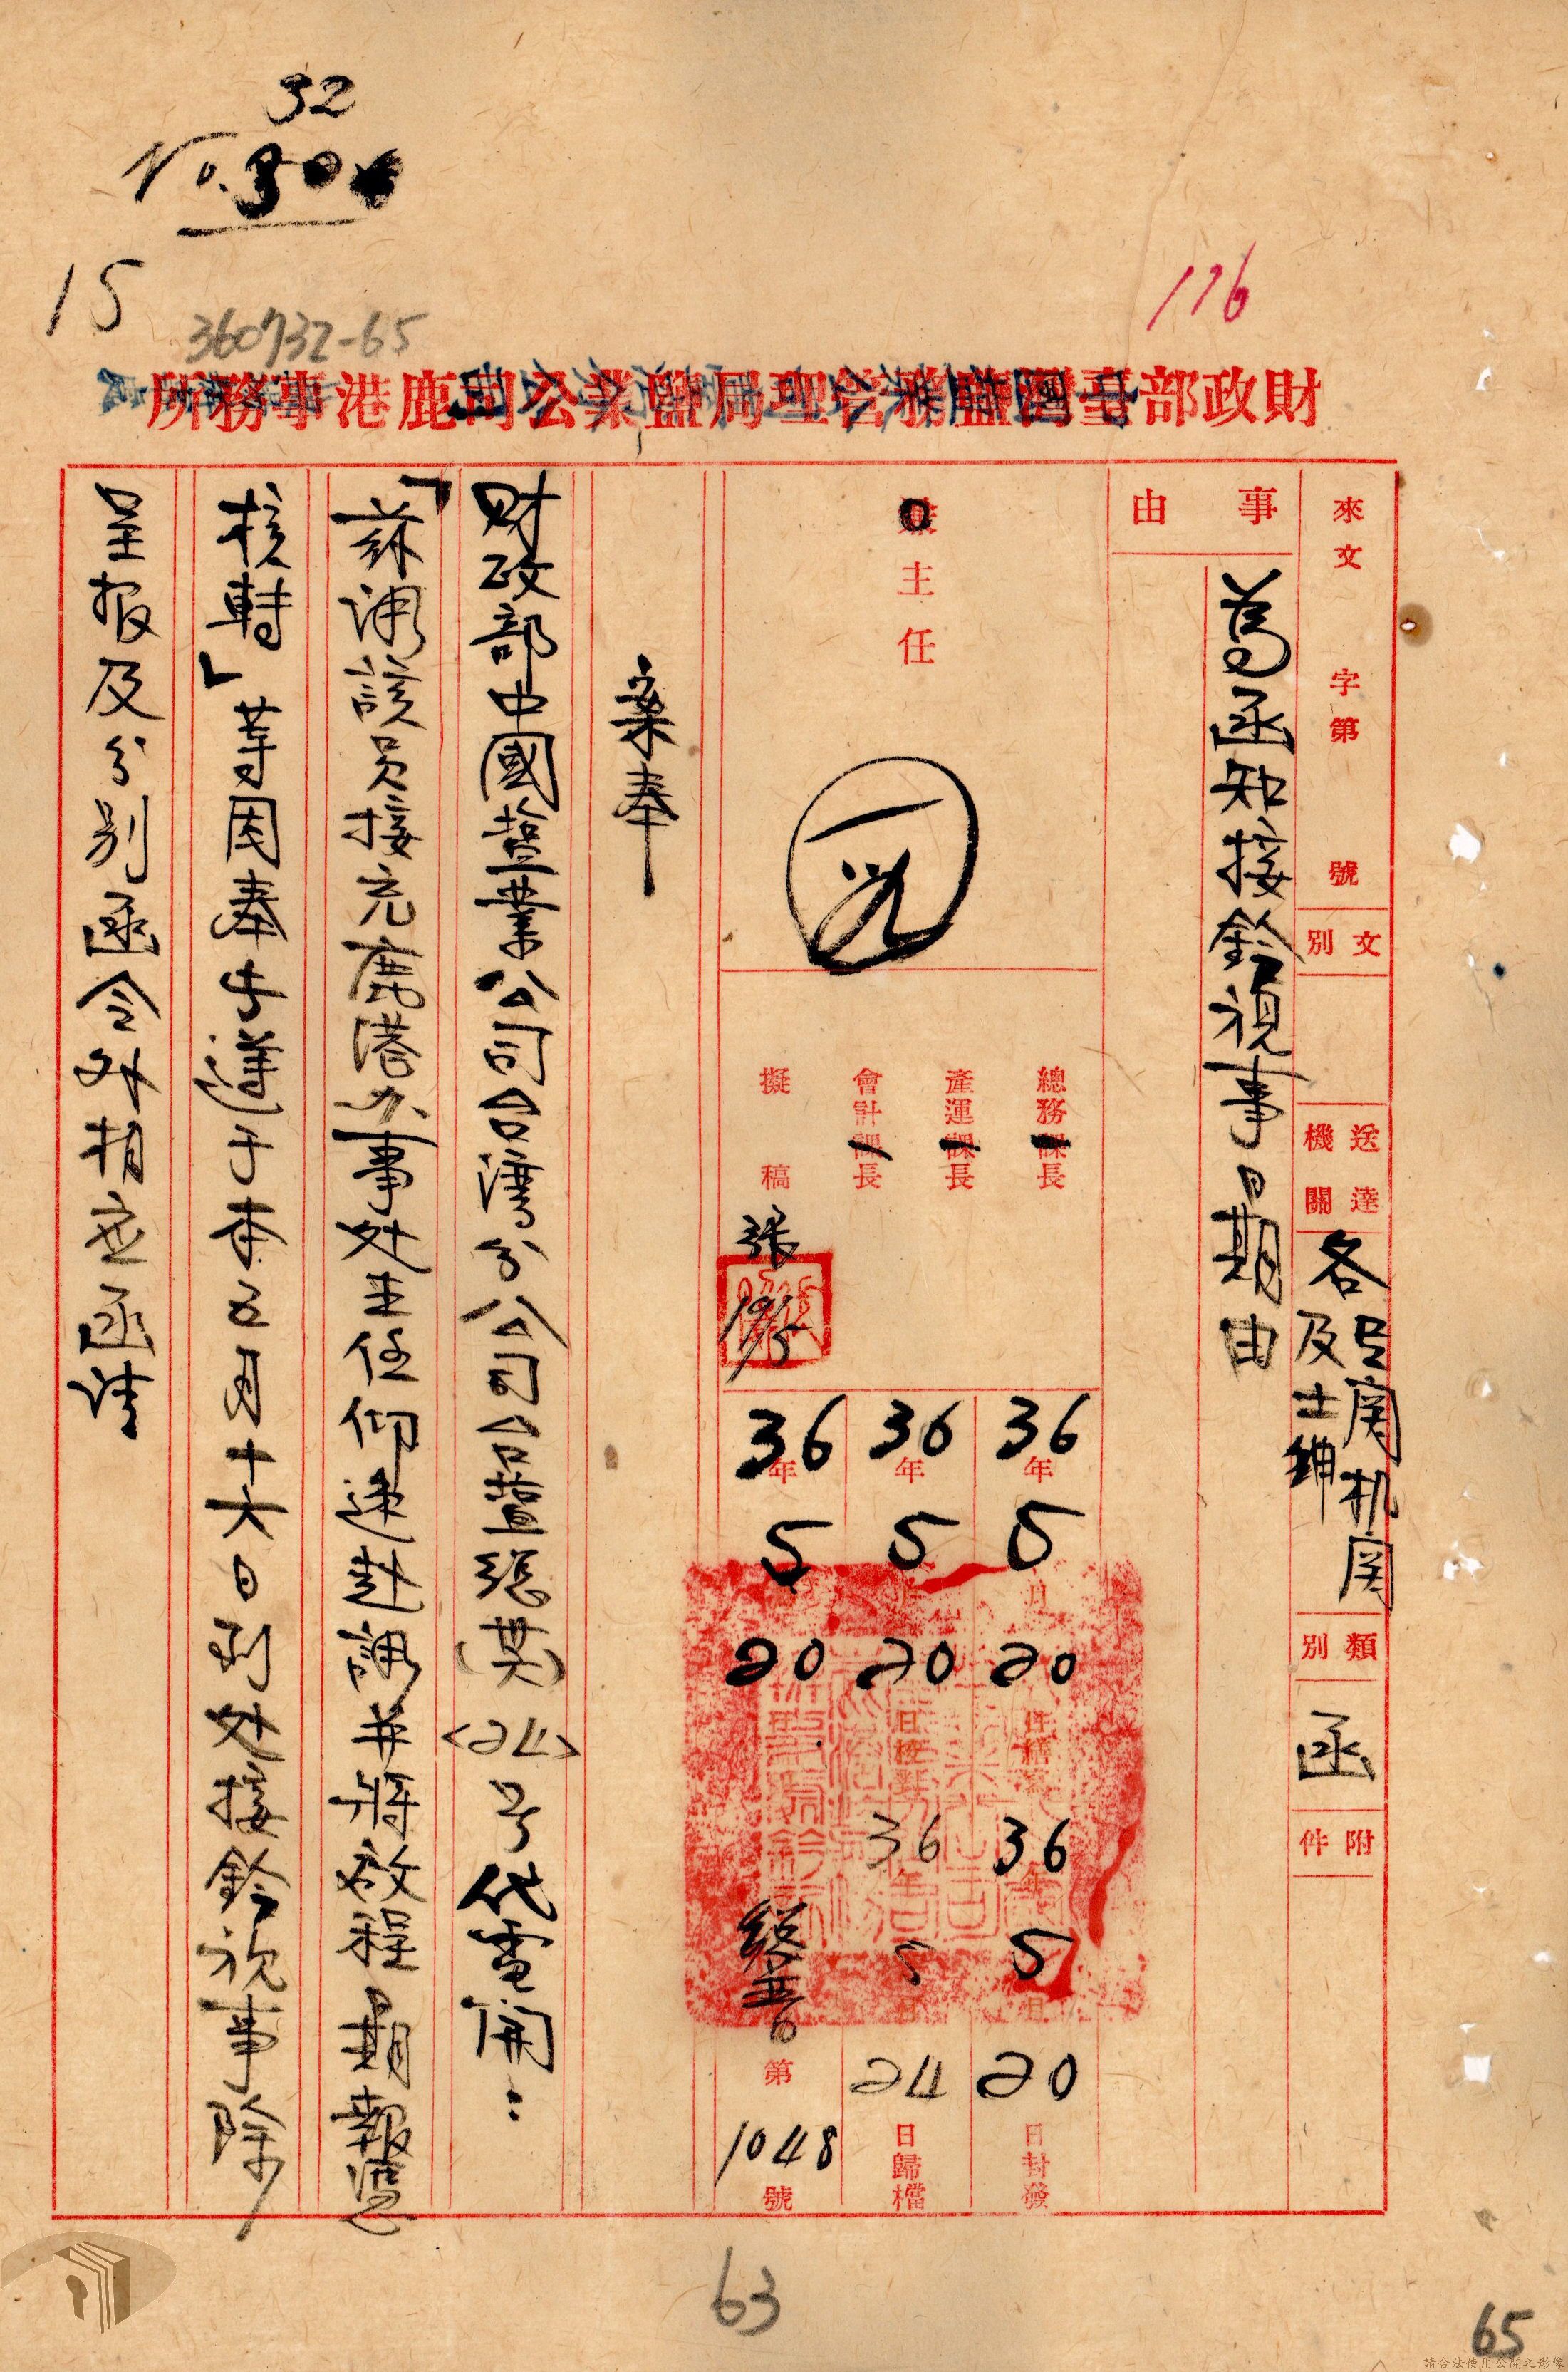 32
No.
15
360732-65
116
財政部臺灣鹽務管理局鹽業公司鹿港事務所
來文 字第 號
文別
送達機關
各有関机関
及士紳
類別
函
附件
事由
為函知接鈐視事日期由
主任
總務課長
產運課長
會計課長
擬稿
張
19/5
36年
5
20
36年
5
20
日校對
36年
5
20
36年
5
20
日封發
36年
5
24
日歸檔
第
1048
號
案奉
財政部中國鹽業公司台灣分公司台鹽總(英)<24>号代電開:
「茲調該員接充鹿港办事处主任仰速赴調並將啟程日期報憑
核轉」等因奉此遵于本五月十六日到处接鈐視事除
呈报及分别函令外相应函請
63
65
請合法使用公開之影像